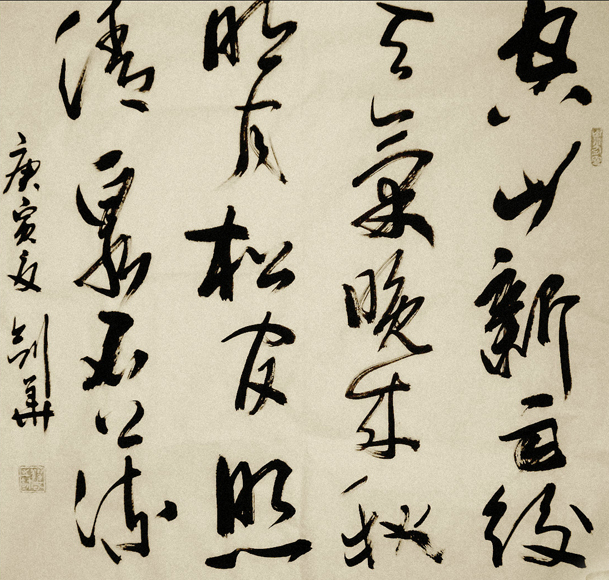 空山新雨後
天氣晚来秋
明月松間照
清泉石上流
庚寅夏 劍華